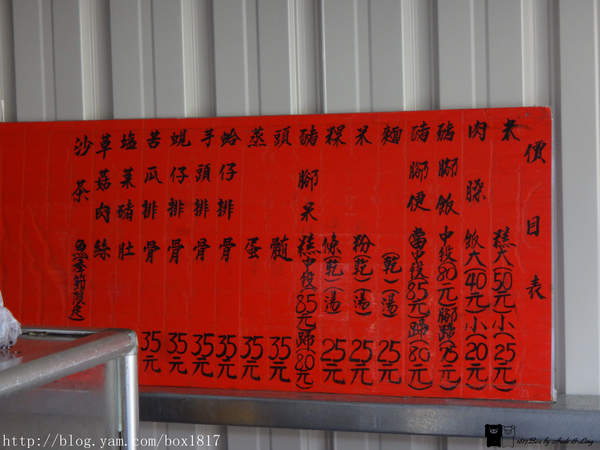 價目表
米糕大(50元)小(25元)
肉臊飯大(40元)小(20元)
豬腳飯中段80元)腳蹄(75元)
豬腳便當中段85元)蹄(80元)
麵(乾)(湯)25元
米粉(乾)(湯)25元
粿條(乾)(湯)25元
豬腳米糕中段(85元蹄(80元)
頭髓35元
蒸蛋35元
蛤仔排骨35元
芋頭排骨35元
蜆仔排骨35元
苦瓜排骨35元
塩菜豬肚
草菇肉絲
沙茶
http://blog.yam.com/box1817